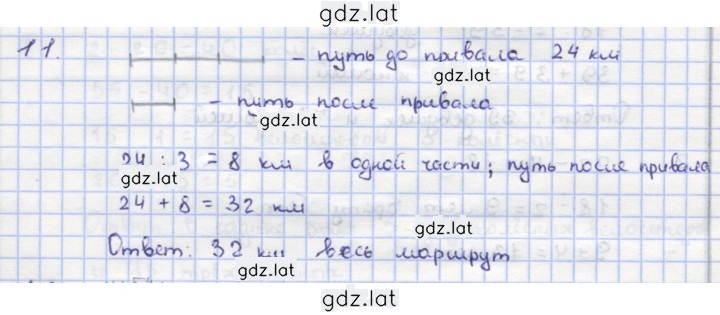 gdz.lat
11. – путь до привала 24 км
gdz.lat
– путь после привала
gdz.lat
24 : 3 = 8 км в одной части; путь после привала
gdz.lat
24 + 8 = 32 км
gdz.lat
Ответ: 32 км весь маршрут
gdz.lat
gdz.lat